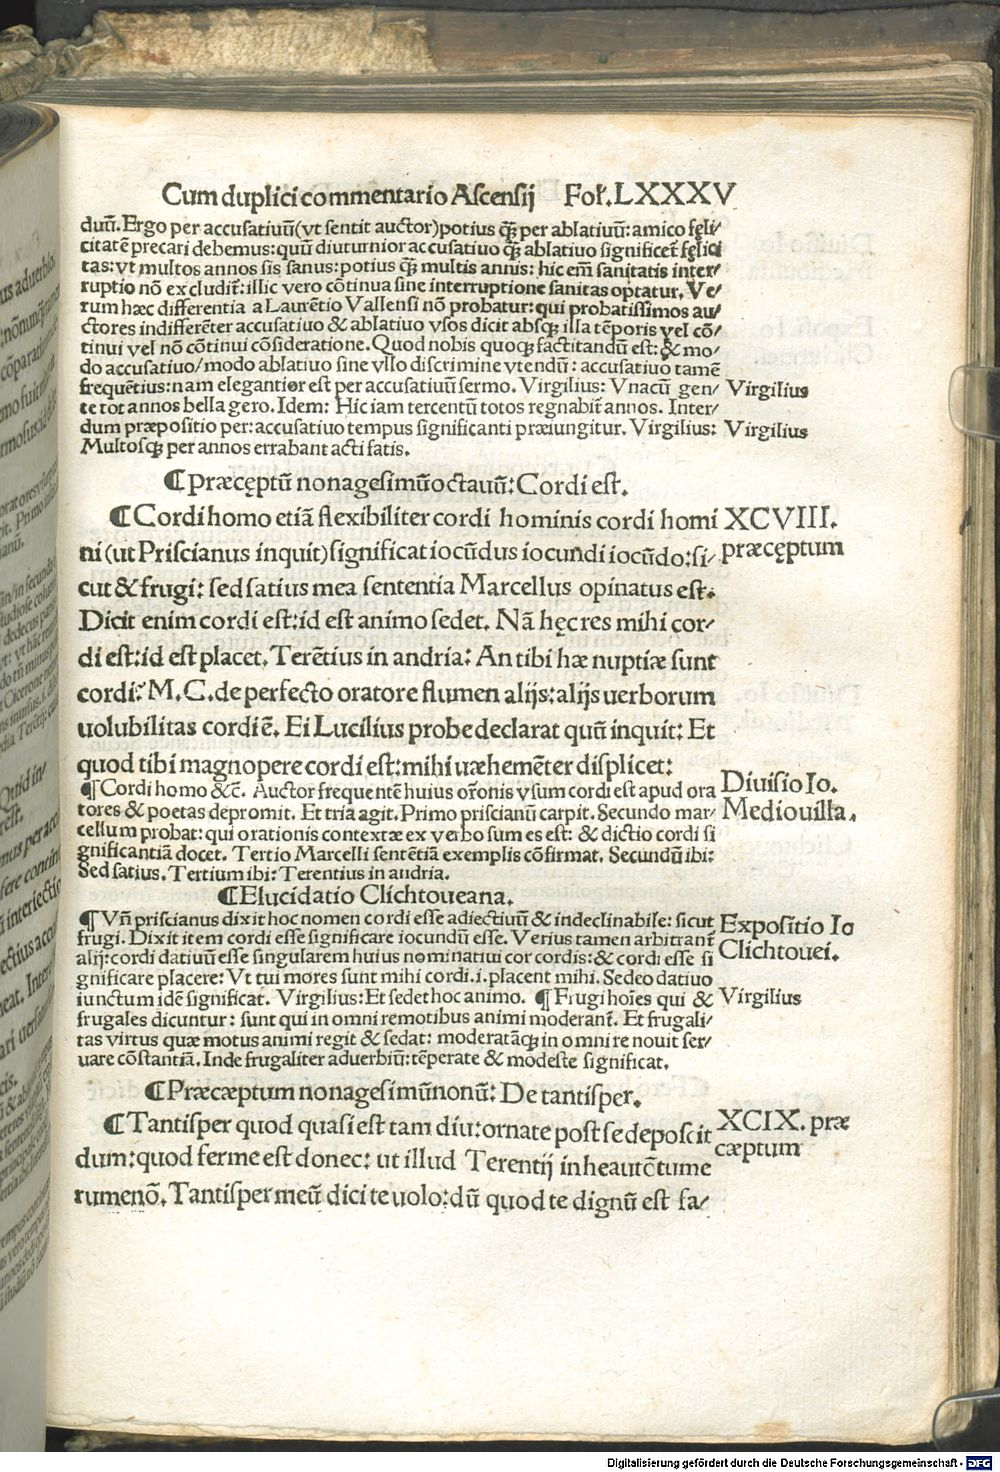 Cum duplici commentario Ascensij Foł.LXXXV
dum̄.Ergo per accusatiuū(vt sentit auctor)potius q̃ꝫ per ablatiuū:amico fęli/
citatē precari debemus:quū diuturnior accusatiuo q̃ꝫ ablatiuo significet̃ fęlici
tas:vt multos annos sis sanus:potius q̃ꝫ multis annis: hic em̄ sanitatis inter/
ruptio nō excludit̃:illic vero cōtinua sine interruptione sanitas optatur. Ve/
rum hæc differentia a Laurētio Vallensi nō probatur: qui probatissimos au/
ctores indifferēter accusatiuo & ablatiuo vsos dicit absqꝫ illa tēporis vel cō/
tinui vel nō cōtinui cōsideratione.Quod nobis quoqꝫ factitandū est: & mo/
do accusatiuo/modo ablatiuo sine vllo discrimine vtendū: accusatiuo tamē
frequētius:nam elegantior est per accusatiuū sermo. Virgilius: Vnacū gen/ Virgilius
te tot annos bella gero. Idem: Hic iam tercentū totos regnabit̃ annos. Inter/
dum præpositio per:accusatiuo tempus significanti præiungitur. Virgilius: Virgilius
Multosqꝫ per annos errabant acti fatis.
¶Præcęptū nonagesimūoctauū:Cordi est.
¶Cordi homo etiā flexibiliter cordi hominis cordi homi XCVIII.
ni(ut Priscianus inquit)significat iocūdus iocundi iocūdo:si/ præcęptum
cut & frugi: sed satius mea sententia Marcellus opinatus est.
Dicit enim cordi est:id est animo sedet. Nā hęc res mihi cor/
di est:id est placet. Terētius in andria: An tibi hæ nuptiæ sunt
cordi? M.C.de perfecto oratore flumen alijs:alijs uerborum
uolubilitas cordi ē. Ei Lucilius probe declarat quū inquit: Et
quod tibi magnopere cordi est:mihi uæhemēter displicet:
¶Cordi homo &c̃. Auctor frequentē huius or̃onis vsum cordi est apud ora Diuisio Io.
tores & poetas depromit. Et tria agit. Primo priscianū carpit. Secundo mar/ Mediouilla.
cellum probat: qui orationis contextæ ex verbo sum es est: & dictio cordi si
gnificantiā docet. Tertio Marcelli sentētiā exemplis cōfirmat. Secundū ibi:
Sed satius. Tertium ibi: Terentius in andria.
¶Elucidatio Clichtoueana.
¶Vn̄ priscianus dixit hoc nomen cordi esse adiectiuū & indeclinabile: sicut Expositio Io
frugi. Dixit item cordi esse significare iocundū esse. Verius tamen arbitrant̃ Clichtouei.
alij:cordi datiuū esse singularem huius nominatiui cor cordis:& cordi esse si
gnificare placere: Vt tui mores sunt mihi cordi.i.placent mihi. Sedeo datiuo
iunctum idē significat. Virgilius:Et sedet hoc animo. ¶Frugi hoīes qui & Virgilius
frugales dicuntur: sunt qui in omni re motibus animi moderant̃. Et frugali/
tas virtus quæ motus animi regit & sedat: moderatāqꝫ in omni re nouit ser/
uare cōstantiā. Inde frugaliter aduerbiū:tēperate & modeste significat.
¶Præcæptum nonagesimūnonū: De tantisper.
¶Tantisper quod quasi est tam diu:ornate post se deposcit XCIX. præ
dum:quod ferme est donec: ut illud Terentij in heautētume cæptum
rumenō. Tantisper meū dici te uolo:dū quod te dignū est fa/
Digitalisierung gefördert durch die Deutsche Forschungsgemeinschaft - DFG